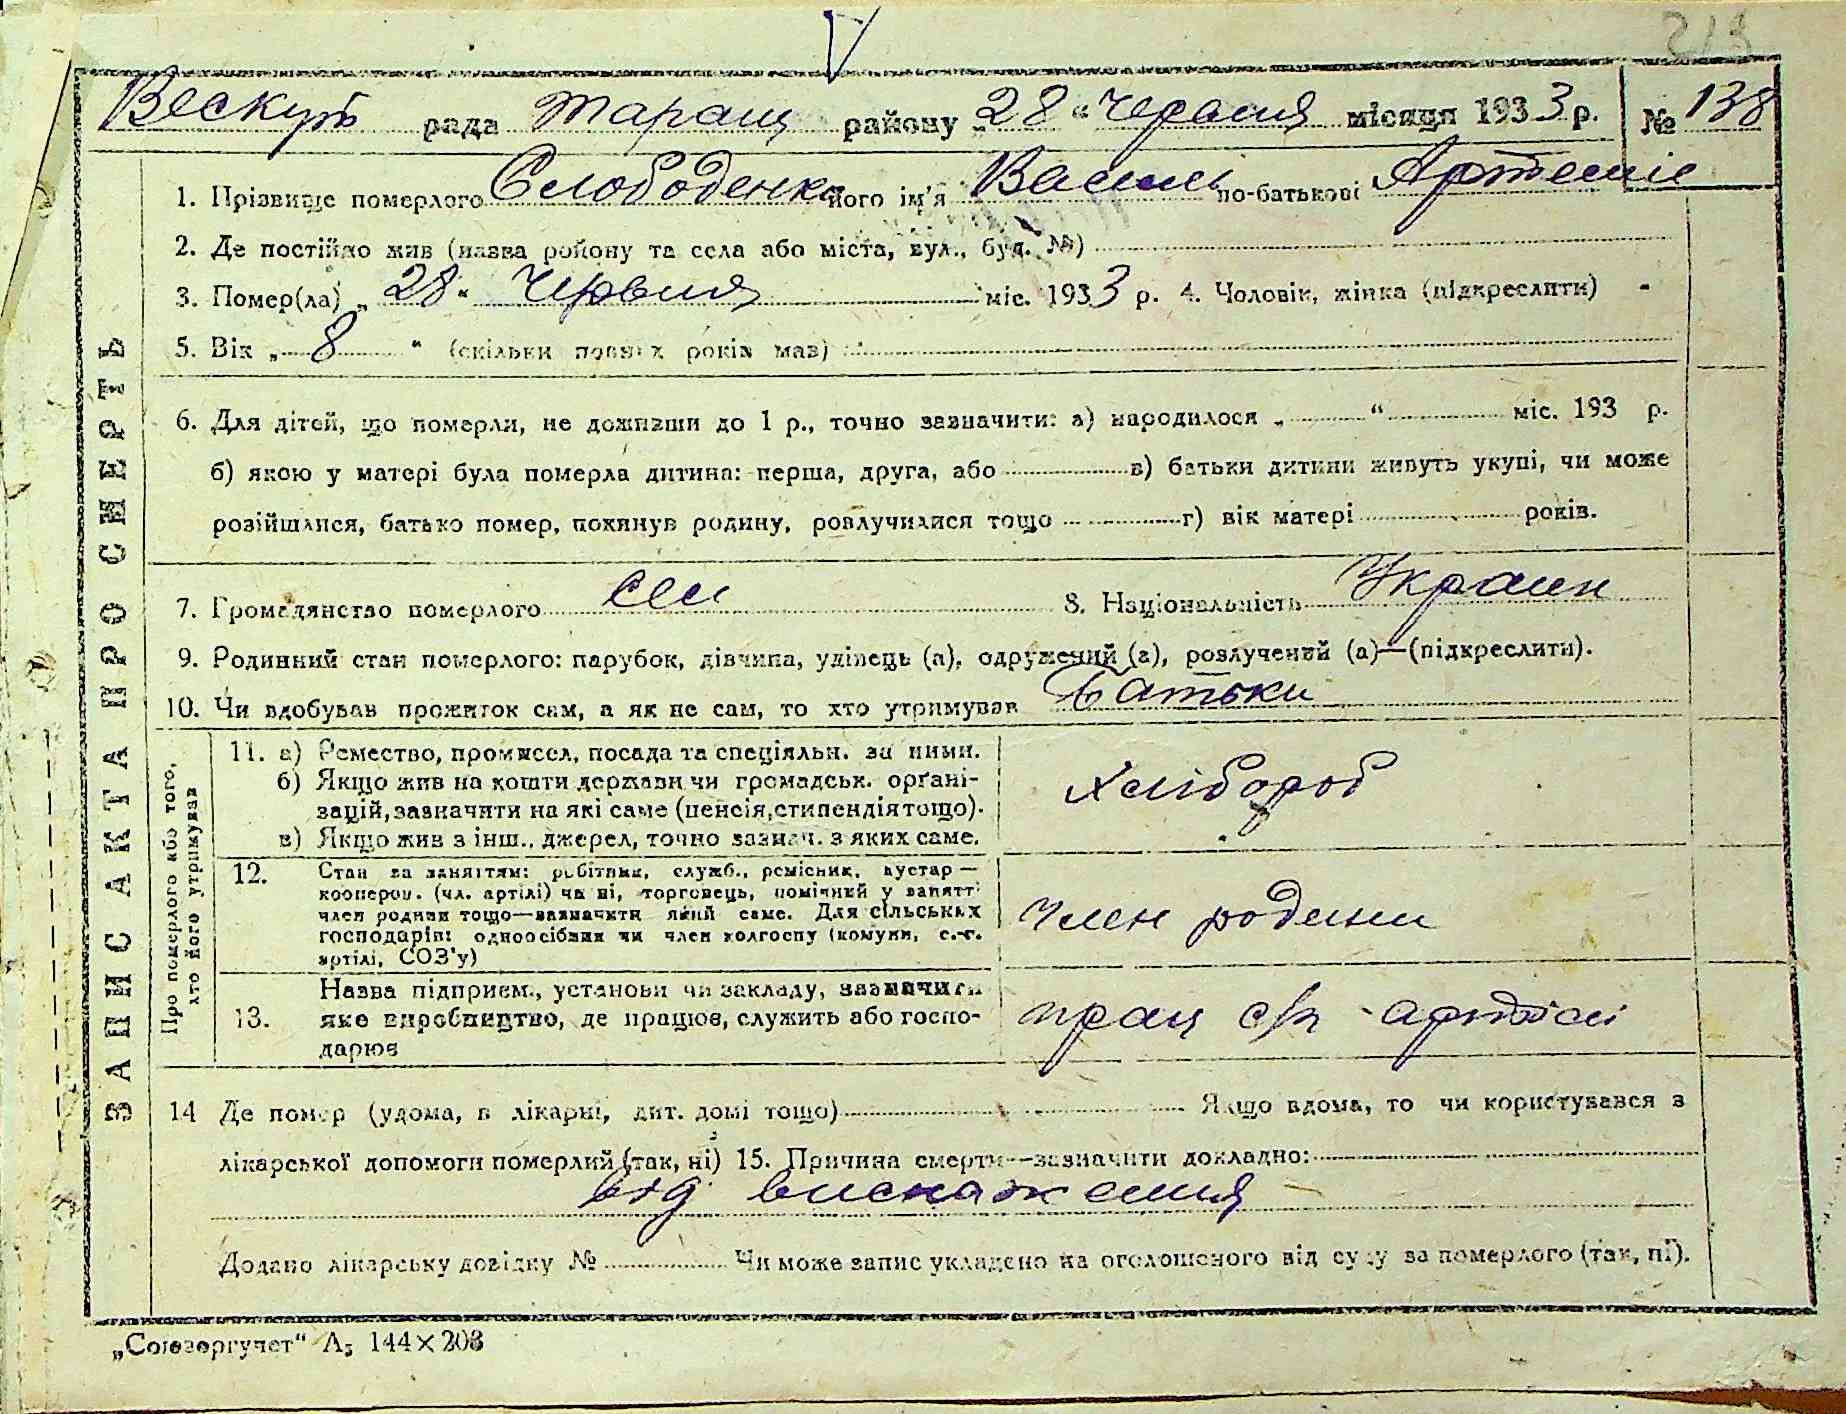 213
Вескуть рада Таращ району „28“ Червня місяця 1933 р. № 138
ЗАПИС АКТА ПРО СМЕРТЬ
1. Прізвище померлого Слободенко його ім'я Василь по-батькові Артеміє
2. Де постійно жив (назва району та села або міста, вул., буд. №)
3. Помер(ла) „28“ Червня міс. 1933 р. 4. Чоловік, жінка (підкреслити) -
5. Вік „8“ (скільки повних років мав)
6. Для дітей, що померли, не доживши до 1 р., точно зазначити: а) народилося „ “ міс. 193 р.
б) якою у матері була померла дитина: перша, друга, або в) батьки дитини живуть укупі, чи може
розійшлися, батько помер, покинув родину, розлучилися тощо г) вік матері років.
7. Громадянство померлого 8. Національність Украин
9. Родинний стан померлого: парубок, дівчина, удівець (а), одружений (а), розлучений (а)—(підкреслити).
10. Чи здобував прожиток сам, а як не сам, то хто утримував Батьки
Про померлого або того, хто його утримував
11. а) Ремество, промисел, посада та спеціяльн. за ними.
б) Якщо жив на кошти держави чи громадськ. органі-
зацій, зазначити на які саме (пенсія, стипендія тощо).
в) Якщо жив з інш., джерел, точно зазнач. з яких саме.
Хлібороб
12. Стан за заняттям: робітник, служб., ремісник, кустар —
кооперов. (чл. артілі) чи ні, торговець, помічний у занятті
член родини тощо—зазначити який саме. Для сільських
господарів: одноосібник чи член колгоспу (комуни, с.-г.
артілі, СОЗ'у)
член родини
13. Назва підприєм., установи чи закладу, зазначити
яке виробництво, де працює, служить або госпо-
дарює
прац с/г артілі
14 Де помер (удома, в лікарні, дит. домі тощо) Якщо вдома, то чи користувався з
лікарської допомоги померлий (так, ні) 15. Причина смерти—зазначити докладно:
від виснаження
Додано лікарську довідку № Чи може запис укладено на оголошеного від суду за померлого (так, ні).
„Союзоргучет“ А5 144×203